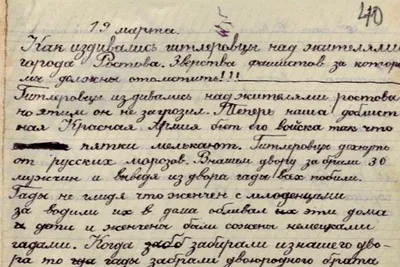 40
19 марта.
Как издивались гитлеровцы над жителями
города Ростова. Зверства фашистов за которо
мы должны отомстить!!!
Гитлеровцы издивались над жителями ростова
но этим он не загрозил. Теперь наша доблист
ная Красная Армия бьёт его войска так что
пятки мелькают. Гитлеровцы
от русских морозов. В нашем двору забрали 30
мужчин и выведя из двора гады всех побили.
Гады не глидя что женчен с млоденцами
за водили их в дома обливал их эти дома
и дети и женчены были сожены немецками
гадами. Когда забирали из нашего дво-
ра то гады забрали двоюродного брата